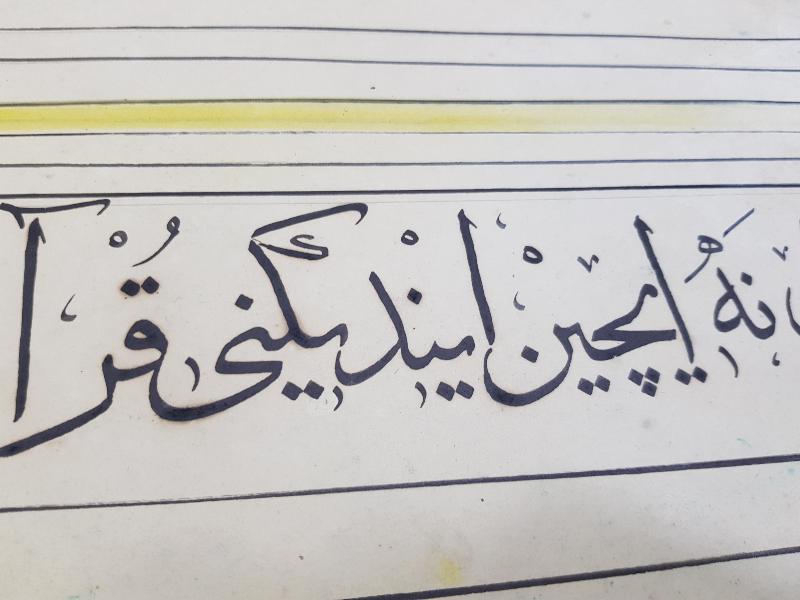 نه ایچین ایندیگنی قُرْآ